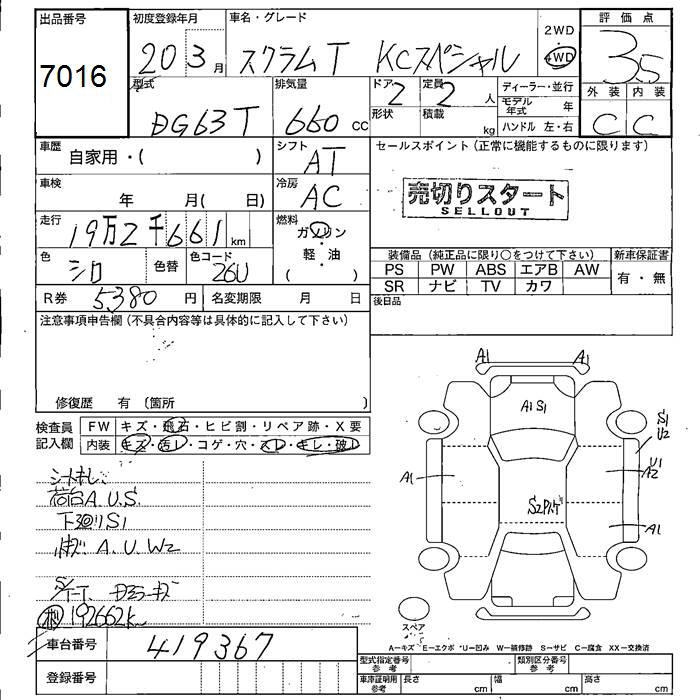 出品番号
7016
初度登録年月
20 3 月
車名・グレード
スクラムT KCスペシャル
2WD
4WD
評価点
3.5
外装 内装
C C
型式
DG63T
排気量
660 cc
ドア
2
形状
定員
2 人
積載
kg
ディーラー・並行
モデル年式 年
ハンドル 左・右
車歴
自家用・( )
シフト
AT
車検
年 月( 日)
冷房
AC
走行
19万2千661 km
燃料
ガソリン
軽・油
( )
色
シロ
色替
色コード
26U
R券 5380 円
名変期限 月 日
セールスポイント (正常に機能するものに限ります)
売切りスタート
SELLOUT
装備品 (純正品に限り○をつけて下さい)
新車保証書
PS PW ABS エアB AW
SR ナビ TV カワ
有・無
後日品
注意事項申告欄 (不具合内容等は具体的に記入して下さい)
修復歴 有 〔箇所 〕
検査員
記入欄
FW キズ・飛石・ヒビ割・リペア跡・X要
内装 キズ・汚レ・コゲ・穴・スレ・キレ・破レ
シートキレ
荷台A.U.S.
下廻りS1
A.U.W2
192662k
車台番号 419367
登録番号
A1
A1
A1 S1
S1
U2
A1
U1
A2
A1
スペア
A―キズ E―エクボ U―凹み W―補修跡 S―サビ C―腐食 XX―交換済
型式指定番号
参考
類別区分番号
参考
車庫証明用
参考
長さ cm
幅 cm
高さ cm